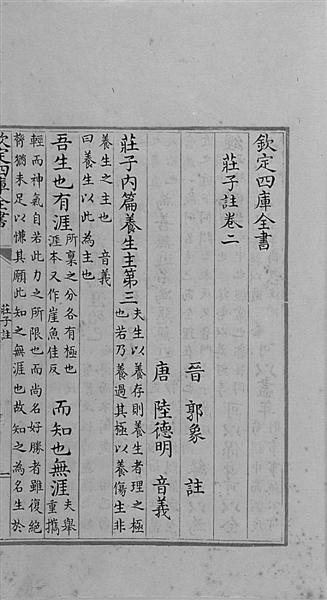 欽定四庫全書
莊子註卷二
晉 郭象 註
唐 陸德明 音義
莊子內篇養生主第三夫生以養存則養生者理之極
也若乃養過其極以養傷生非
養生之主也 音義
曰養生以此為主也
吾生也有涯所稟之分各有極也
涯本又作崖魚佳反
而知也無涯夫舉
重擕
輕而神氣自若此力之所限也而尚名好勝者雖復絶
膂猶未足以慊其願此知之無涯也故知之為名生於
欽定四庫全書
莊子註
一